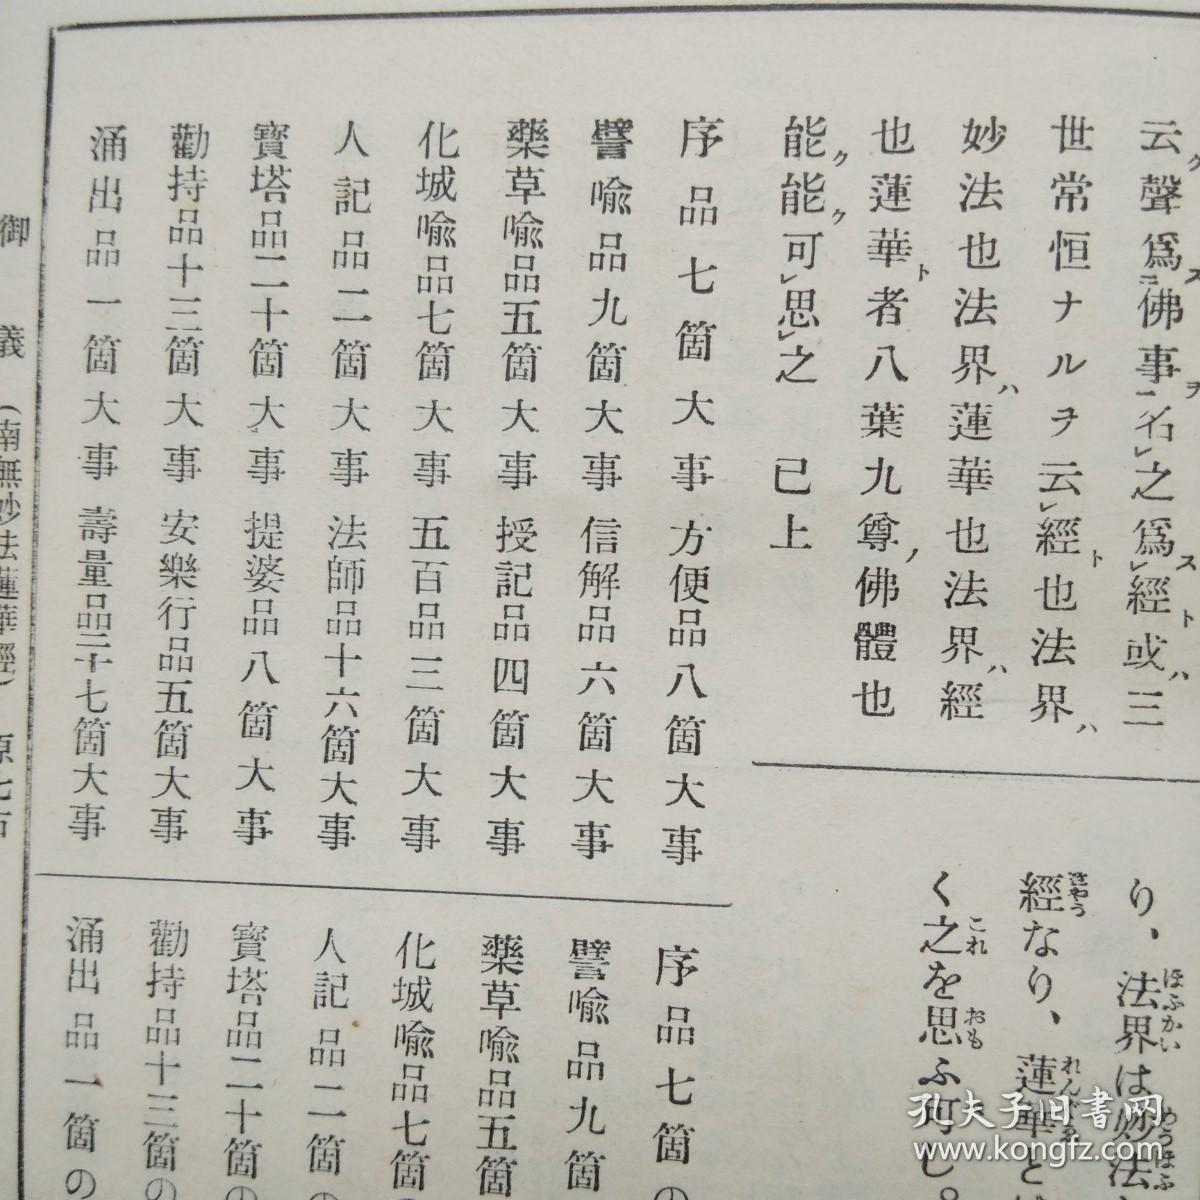 云ク聲爲ス佛事ヲ名之爲ス經ト或ハ三
世常恒ナルヲ云經ト也法界ハ
妙法也法界ハ蓮華也法界ハ經
也蓮華ト者八葉九尊ノ佛體也
能ク能ク可思之 已上
序品七箇大事 方便品八箇大事
譬喩品九箇大事 信解品六箇大事
藥草喩品五箇大事 授記品四箇大事
化城喩品七箇大事 五百品三箇大事
人記品二箇大事 法師品十六箇大事
寶塔品二十箇大事 提婆品八箇大事
勸持品十三箇大事 安樂行品五箇大事
涌出品一箇大事 壽量品二十七箇大事
り、法界は妙法
經なり、蓮華と
く之を思ふ可し。
序品七箇の
譬喩品九箇
藥草喩品五箇
化城喩品七箇
人記品二箇の
寶塔品二十箇の
勸持品十三箇の
涌出品一箇の
御義(南無妙法蓮華經)
孔夫子旧书网
www.kongfz.com